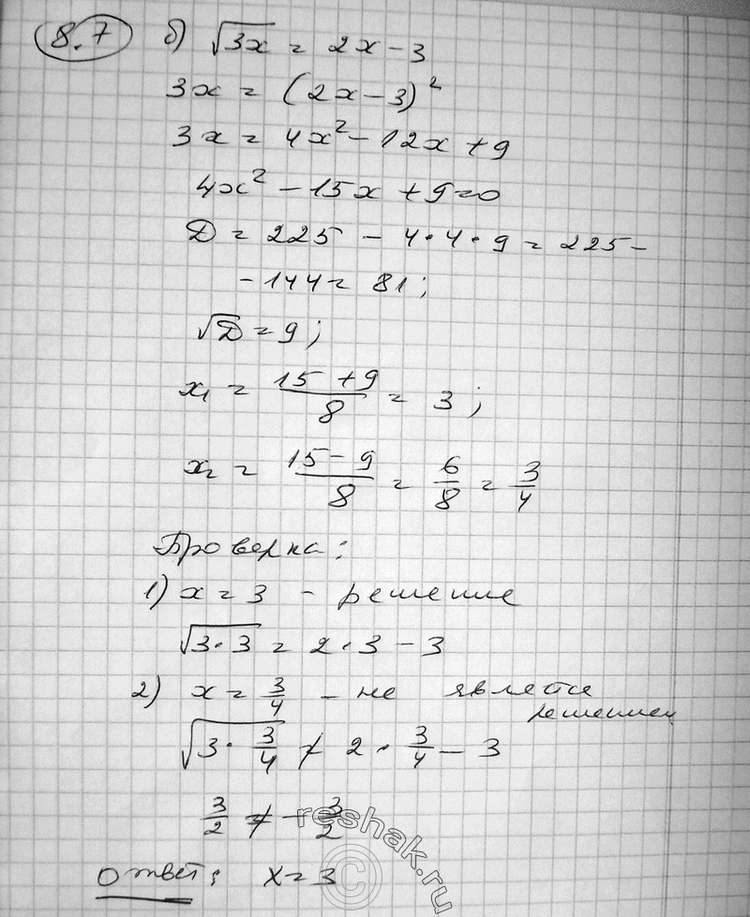 8.7 б) √3x = 2x - 3
3x = (2x - 3)²
3x = 4x² - 12x + 9
4x² - 15x + 9 = 0
D = 225 - 4·4·9 = 225 -
- 144 = 81;
√D = 9;
x₁ = (15 + 9)/8 = 3;
x₂ = (15 - 9)/8 = 6/8 = 3/4
Проверка:
1) x = 3 - решение
√3·3 = 2·3 - 3
2) x = 3/4 - не является
решением
√3·3/4 ≠ 2·3/4 - 3
3/2 ≠ - 3/2
Ответ: x = 3
reshak.ru
©